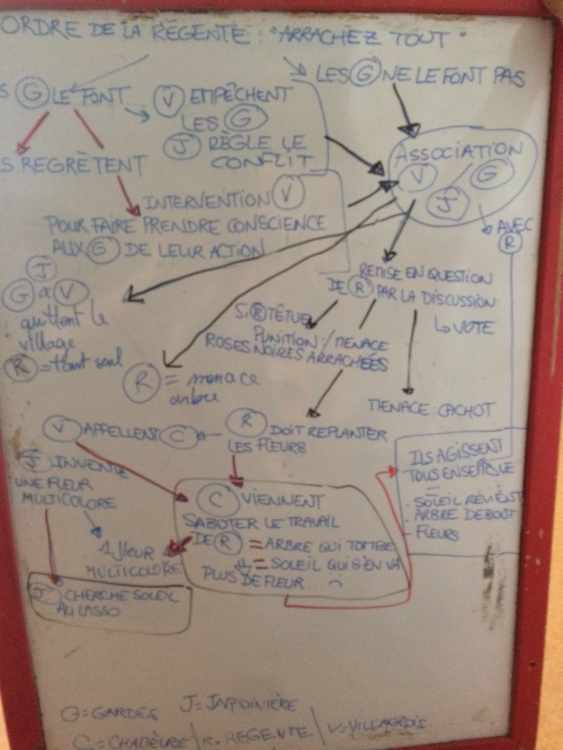 ORDRE DE LA RÉGENTE : "ARRACHEZ TOUT"
S G LE FONT
LES G NE LE FONT PAS
V EMPÊCHENT
LES G
J RÈGLE LE
CONFLIT
S REGRÈTENT
ASSOCIATION
V G
J
INTERVENTION V
POUR FAIRE PRENDRE CONSCIENCE
AUX G DE LEUR ACTION
AVEC
R
J
G & V
quittent le
village
R = tout seul
REMISE EN QUESTION
DE R PAR LA DISCUSSION
↳ VOTE
SI R TÊTUE
PUNITION / MENACE
ROSES NOIRES ARRACHÉES
R = menace
MENACE : CACHOT
V APPELLENT C
R DOIT REPLANTER
LES FLEURS
J INVENTE
UNE FLEUR
MULTICOLORE
ILS AGISSENT
TOUS ENSEMBLE
SOLEIL REVIENT
ARBRE DEBOUT
- FLEURS
C VIENNENT
SABOTER LE TRAVAIL
DE R = ARBRE QUI TOMBE
= SOLEIL QUI S'EN VA
PLUS DE FLEUR...
1 fleur
MULTICOLORE
J CHERCHE SOLEIL
AU LASSO
G = GARDES J = JARDINIÈRE
R = REGENTE / V = VILLAGEOIS